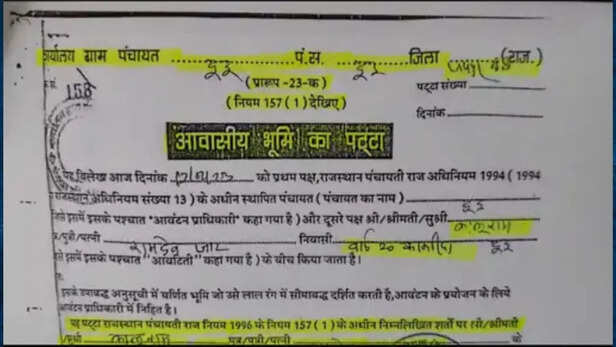 कार्यालय ग्राम पंचायत ........ दूदू ........ पं.स. ........ दूदू ........ जिला (राज.)
(प्रारूप -23-क)
158
(नियम 157 (1) देखिए)
पट्टा संख्या
दिनांक
आवासीय भूमि का पट्टा
यह विलेख आज दिनांक को प्रथम पक्ष,राजस्थान पंचायती राज अधिनियम 1994 (1994
राजस्थान अधिनियम संख्या 13) के अधीन स्थापित पंचायत (पंचायत का नाम) दूदू
जिसे इसमें इसके पश्चात "आवंटन प्राधिकारी" कहा गया है) और दूसरे पक्ष श्री/श्रीमती/सुश्री कालूराम
पुत्र/पुत्री/पत्नी रामदेव जाट निवासी वार्ड 20 दूदू
जिसे इसमें इसके पश्चात "आवंटिती" कहा गया है) के बीच किया जाता है।
इसके उपाबद्ध अनुसूची में वर्णित भूमि जो उसे लाल रंग में सीमाबद्ध दर्शित करती है,आवंटन के प्रयोजन के लिये
आवंटन प्राधिकारी में निहित है।
यह पट्टा राजस्थान पंचायती राज नियम 1996 के नियम 157 (1) के अधीन निम्नलिखित शर्तों पर श्री/श्रीमती
/सुश्री कालूराम पुत्र/पुत्री/पत्नी